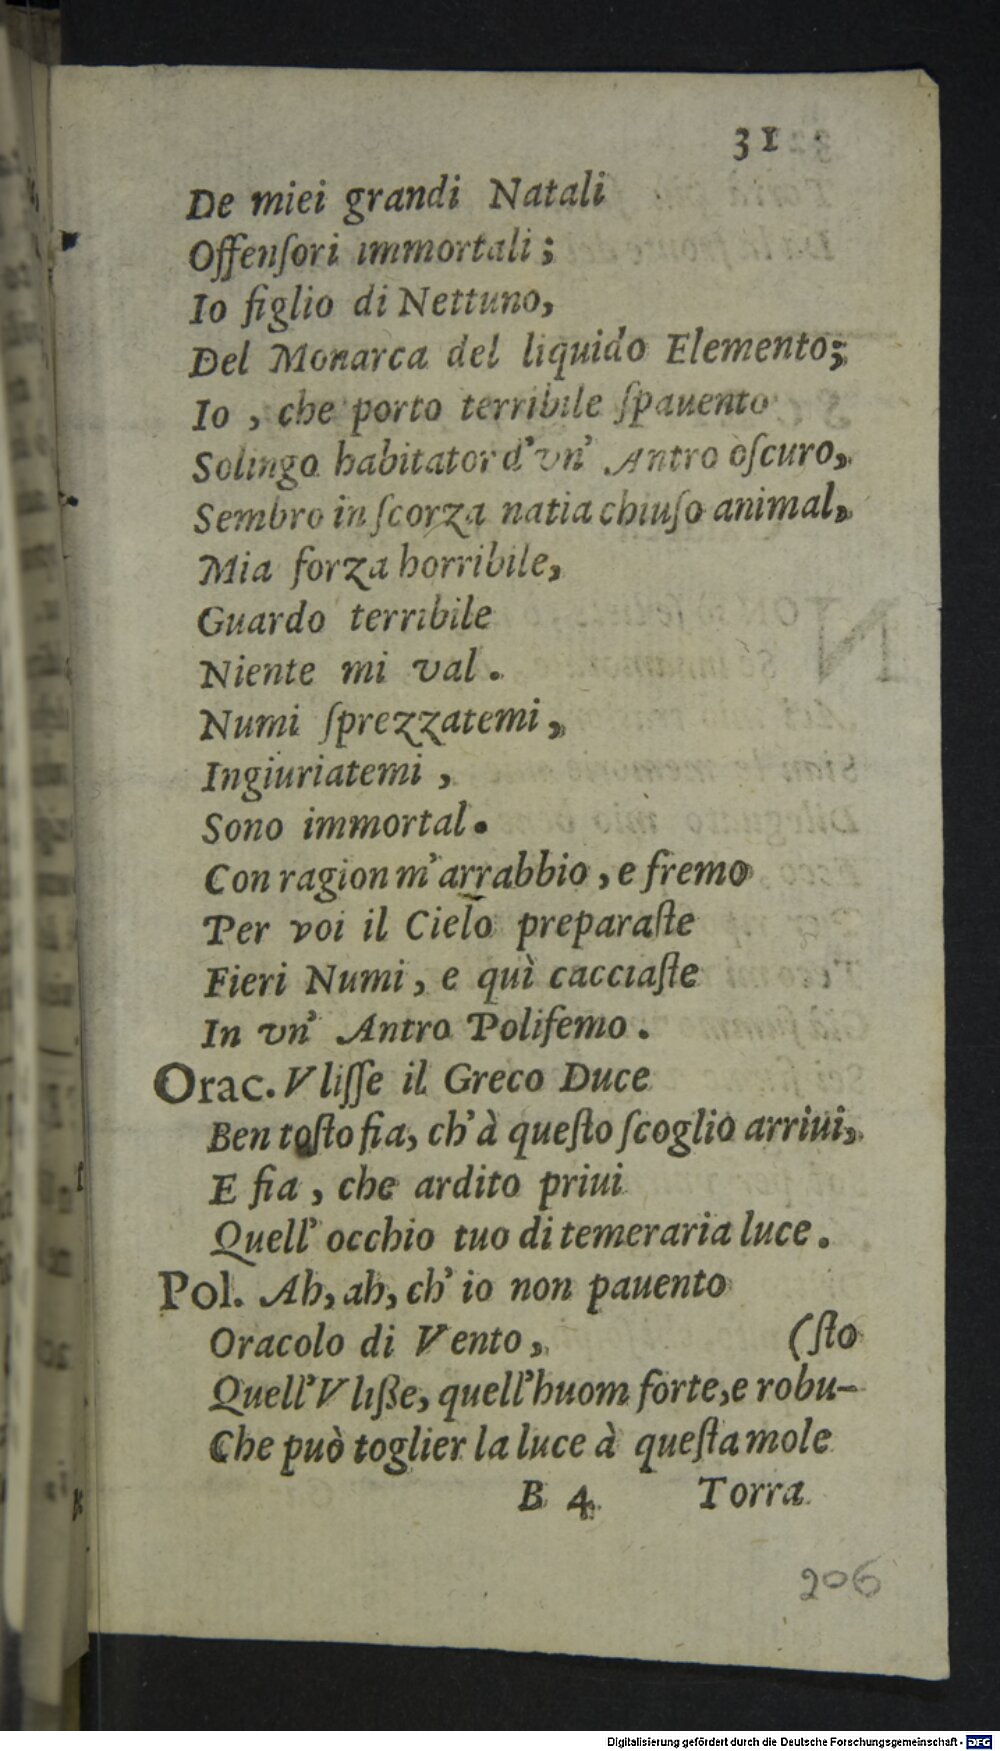 31
De miei grandi Natali
Offenſori immortali;
Io figlio di Nettuno,
Del Monarca del liquido Elemento;
Io, che porto terribile ſpauento
Solingo habitator d'vn' Antro oſcuro,
Sembro in ſcorza natia chiuſo animal,
Mia forza horribile,
Guardo terribile
Niente mi val.
Numi ſprezzatemi,
Ingiuriatemi,
Sono immortal.
Con ragion m'arrabbio, e fremo
Per voi il Cielo preparaſte
Fieri Numi, e quì cacciaſte
In vn' Antro Polifemo.
Orac. Vliſſe il Greco Duce
Ben toſto fia, ch'à queſto ſcoglio arriui,
E fia, che ardito priui
Quell' occhio tuo di temeraria luce.
Pol. Ah, ah, ch' io non pauento
Oracolo di Vento, (ſto
Quell'Vliße, quell'huom forte, e robu-
Che può toglier la luce à queſta mole
B 4 Torra
206
Digitalisierung gefördert durch die Deutsche Forschungsgemeinschaft - DFG